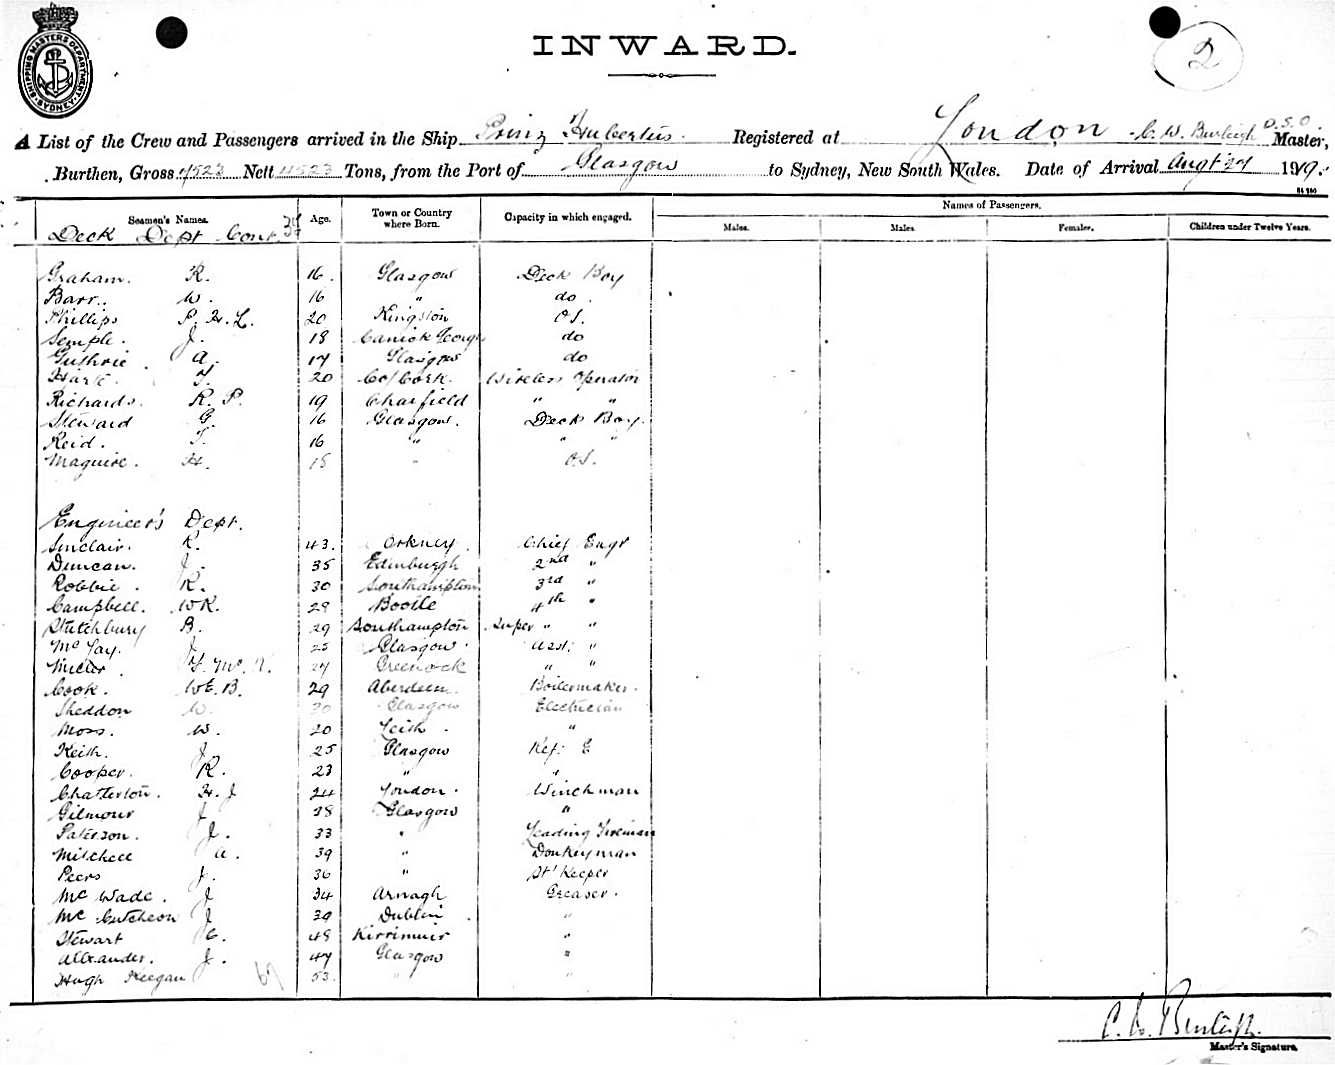 SHIPPING MASTERS DEPARTMENT SYDNEY
INWARD.
2
A List of the Crew and Passengers arrived in the Ship Prinz Hubertus. Registered at London C. W. Burleigh D.S.O Master,
Burthen, Gross 4523 Nett 4523 Tons, from the Port of Glasgow to Sydney, New South Wales. Date of Arrival Augt 27 1919.
Seamen's Names. Age. Town or Country where Born. Capacity in which engaged. Names of Passengers.
Males. Males. Females. Children under Twelve Years.
Deck Dept Cont.
Graham. R. 16. Glasgow Deck Boy
Barr. W. 16 " do.
Phillips P. H. L. 20 Kingston O.S.
Semple. J. 18 do
Guthrie. A. 17 Glasgow do
T. 20 Co/Cork. Wireless Operator
Richards. R. P. 19 Charfield " "
Steward G. 16 Glasgow. Deck Boy.
Reid. T. 16 " " "
Maguire. H. 18 " O.S.
Engineer's Dept.
Sinclair. R. 43. Orkney. Chief Engr
Duncan. J. 35 Edinburgh 2nd "
Robbie. R. 30 Southampton 3rd "
Campbell. W R. 29 Bootle 4th "
Stutchbury B. 29 Southampton Super " "
J. 25 Glasgow. Asst. "
Miller. Greenock " "
Cook. W E. B. 29 Aberdeen. Boilermaker.
Sheddon W. 30 Glasgow Electrician
Moss. W. 20 Leith. "
Keith. J. 25 Glasgow Ref. E
Cooper. R. 23 " "
Chatterton. H. J 24 London. Winchman
Gilmour J. 38 Glasgow "
Paterson. J. 33 " Leading Fireman
Mitchell A. 39 " Donkeyman
Peers J. 36 " St' Keeper
Mc Wade. J 34 Armagh Greaser.
Mc Cutcheon J 39 Dublin. "
Stewart C. 48 Kirrimuir "
Alexander. J. 47 Glasgow "
Hugh Keegan 53. " "
C. W. Burleigh.
Master's Signature.